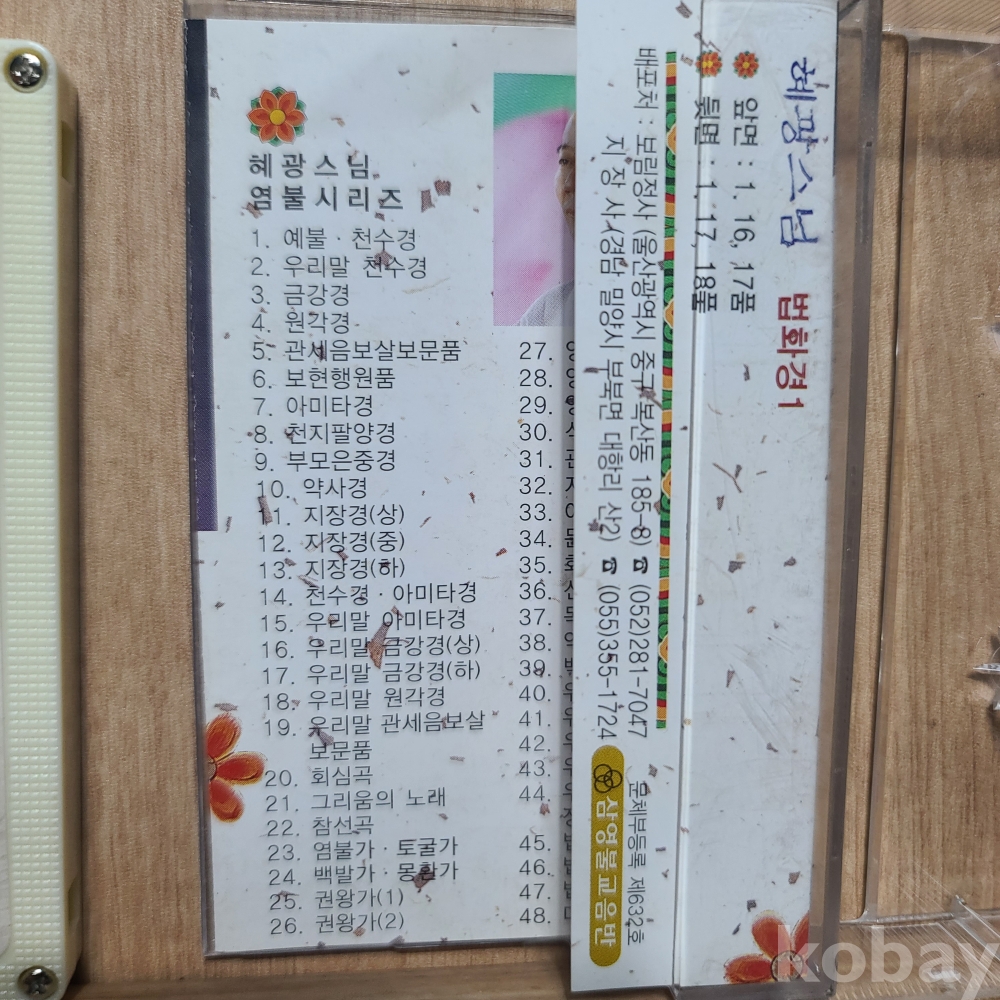 혜광스님
염불시리즈
1. 예불·천수경
2. 우리말 천수경
3. 금강경
4. 원각경
5. 관세음보살보문품
6. 보현행원품
7. 아미타경
8. 천지팔양경
9. 부모은중경
10. 약사경
11. 지장경(상)
12. 지장경(중)
13. 지장경(하)
14. 천수경·아미타경
15. 우리말 아미타경
16. 우리말 금강경(상)
17. 우리말 금강경(하)
18. 우리말 원각경
19. 우리말 관세음보살
보문품
20. 회심곡
21. 그리움의 노래
22. 참선곡
23. 염불가·토굴가
24. 백발가·몽환가
25. 권왕가(1)
26. 권왕가(2)
27.
28.
29.
30.
31.
32.
33.
34.
35.
36.
37.
38.
39.
40.
41.
42.
43.
44.
45.
46.
47.
48.
혜광스님 법화경1
앞면 : 1, 16, 17품
뒷면 : 1, 17, 18품
배포처 : 보림정사 (울산광역시 중구 복산동 185-8) ☎ (052)281-7047
지장사 (경남 밀양시 부북면 대항리 산2) ☎ (055)355-1724
문체부등록 제632호
삼영불교음반
kobay